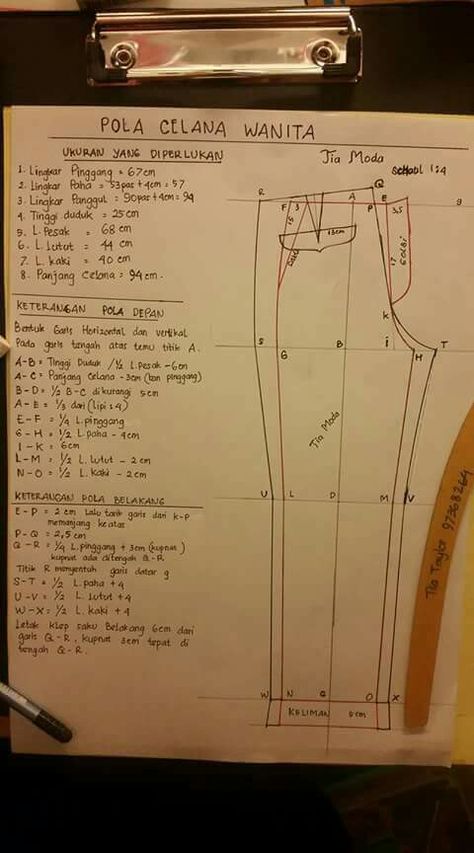 POLA CELANA WANITA
UKURAN YANG DIPERLUKAN
1. Lingkar Pinggang = 67cm
2. Lingkar Paha = 53pas + 4cm = 57
3. Lingkar Panggul = 90pas + 4cm = 94
4. Tinggi duduk = 25cm
5. L. Pesak = 68 cm
6. L. Lutut = 44 cm
7. L. kaki = 40 cm
8. Panjang Celana = 94 cm.
KETERANGAN POLA DEPAN
Bentuk Garis Horizontal dan vertikal
Pada garis tengah atas temu titik A.
A-B = Tinggi Duduk / 1/2 L. pesak - 6cm
A-C = Panjang Celana - 3cm (ban pinggang)
B-D = 1/2 B-C dikurangi 5cm
A-E = 1/3 dari (lipi : 4)
E-F = 1/4 L. pinggang
G-H = 1/2 L. paha - 4cm
I-K = 6cm
L-M = 1/2 L. Lutut - 2 cm
N-O = 1/2 L. kaki - 2cm
KETERANGAN POLA BELAKANG
E-P = 2 cm Lalu tarik garis dari k-p
memanjang ke atas
P-Q = 2,5 cm
Q-R = 1/4 L. pinggang + 3cm (kupnat)
kupnat ada ditengah Q-R
Titik R menyentuh garis datar g
S-T = 1/2 L. paha + 4
U-V = 1/2 L. Lutut + 4
W-X = 1/2 L. kaki + 4
Letak klep saku Belakang 6cm dari
garis Q-R, kupnat 3cm tepat di
tengah Q-R.
Tia Moda
1:4
R
Q
F 3 A P E 3,5 g
15
13cm
17
GOLBI
K
S G B i H T
Tia Moda
U L D M V
W N O X
KELIMAN 5cm
Tia Taylor 97368264